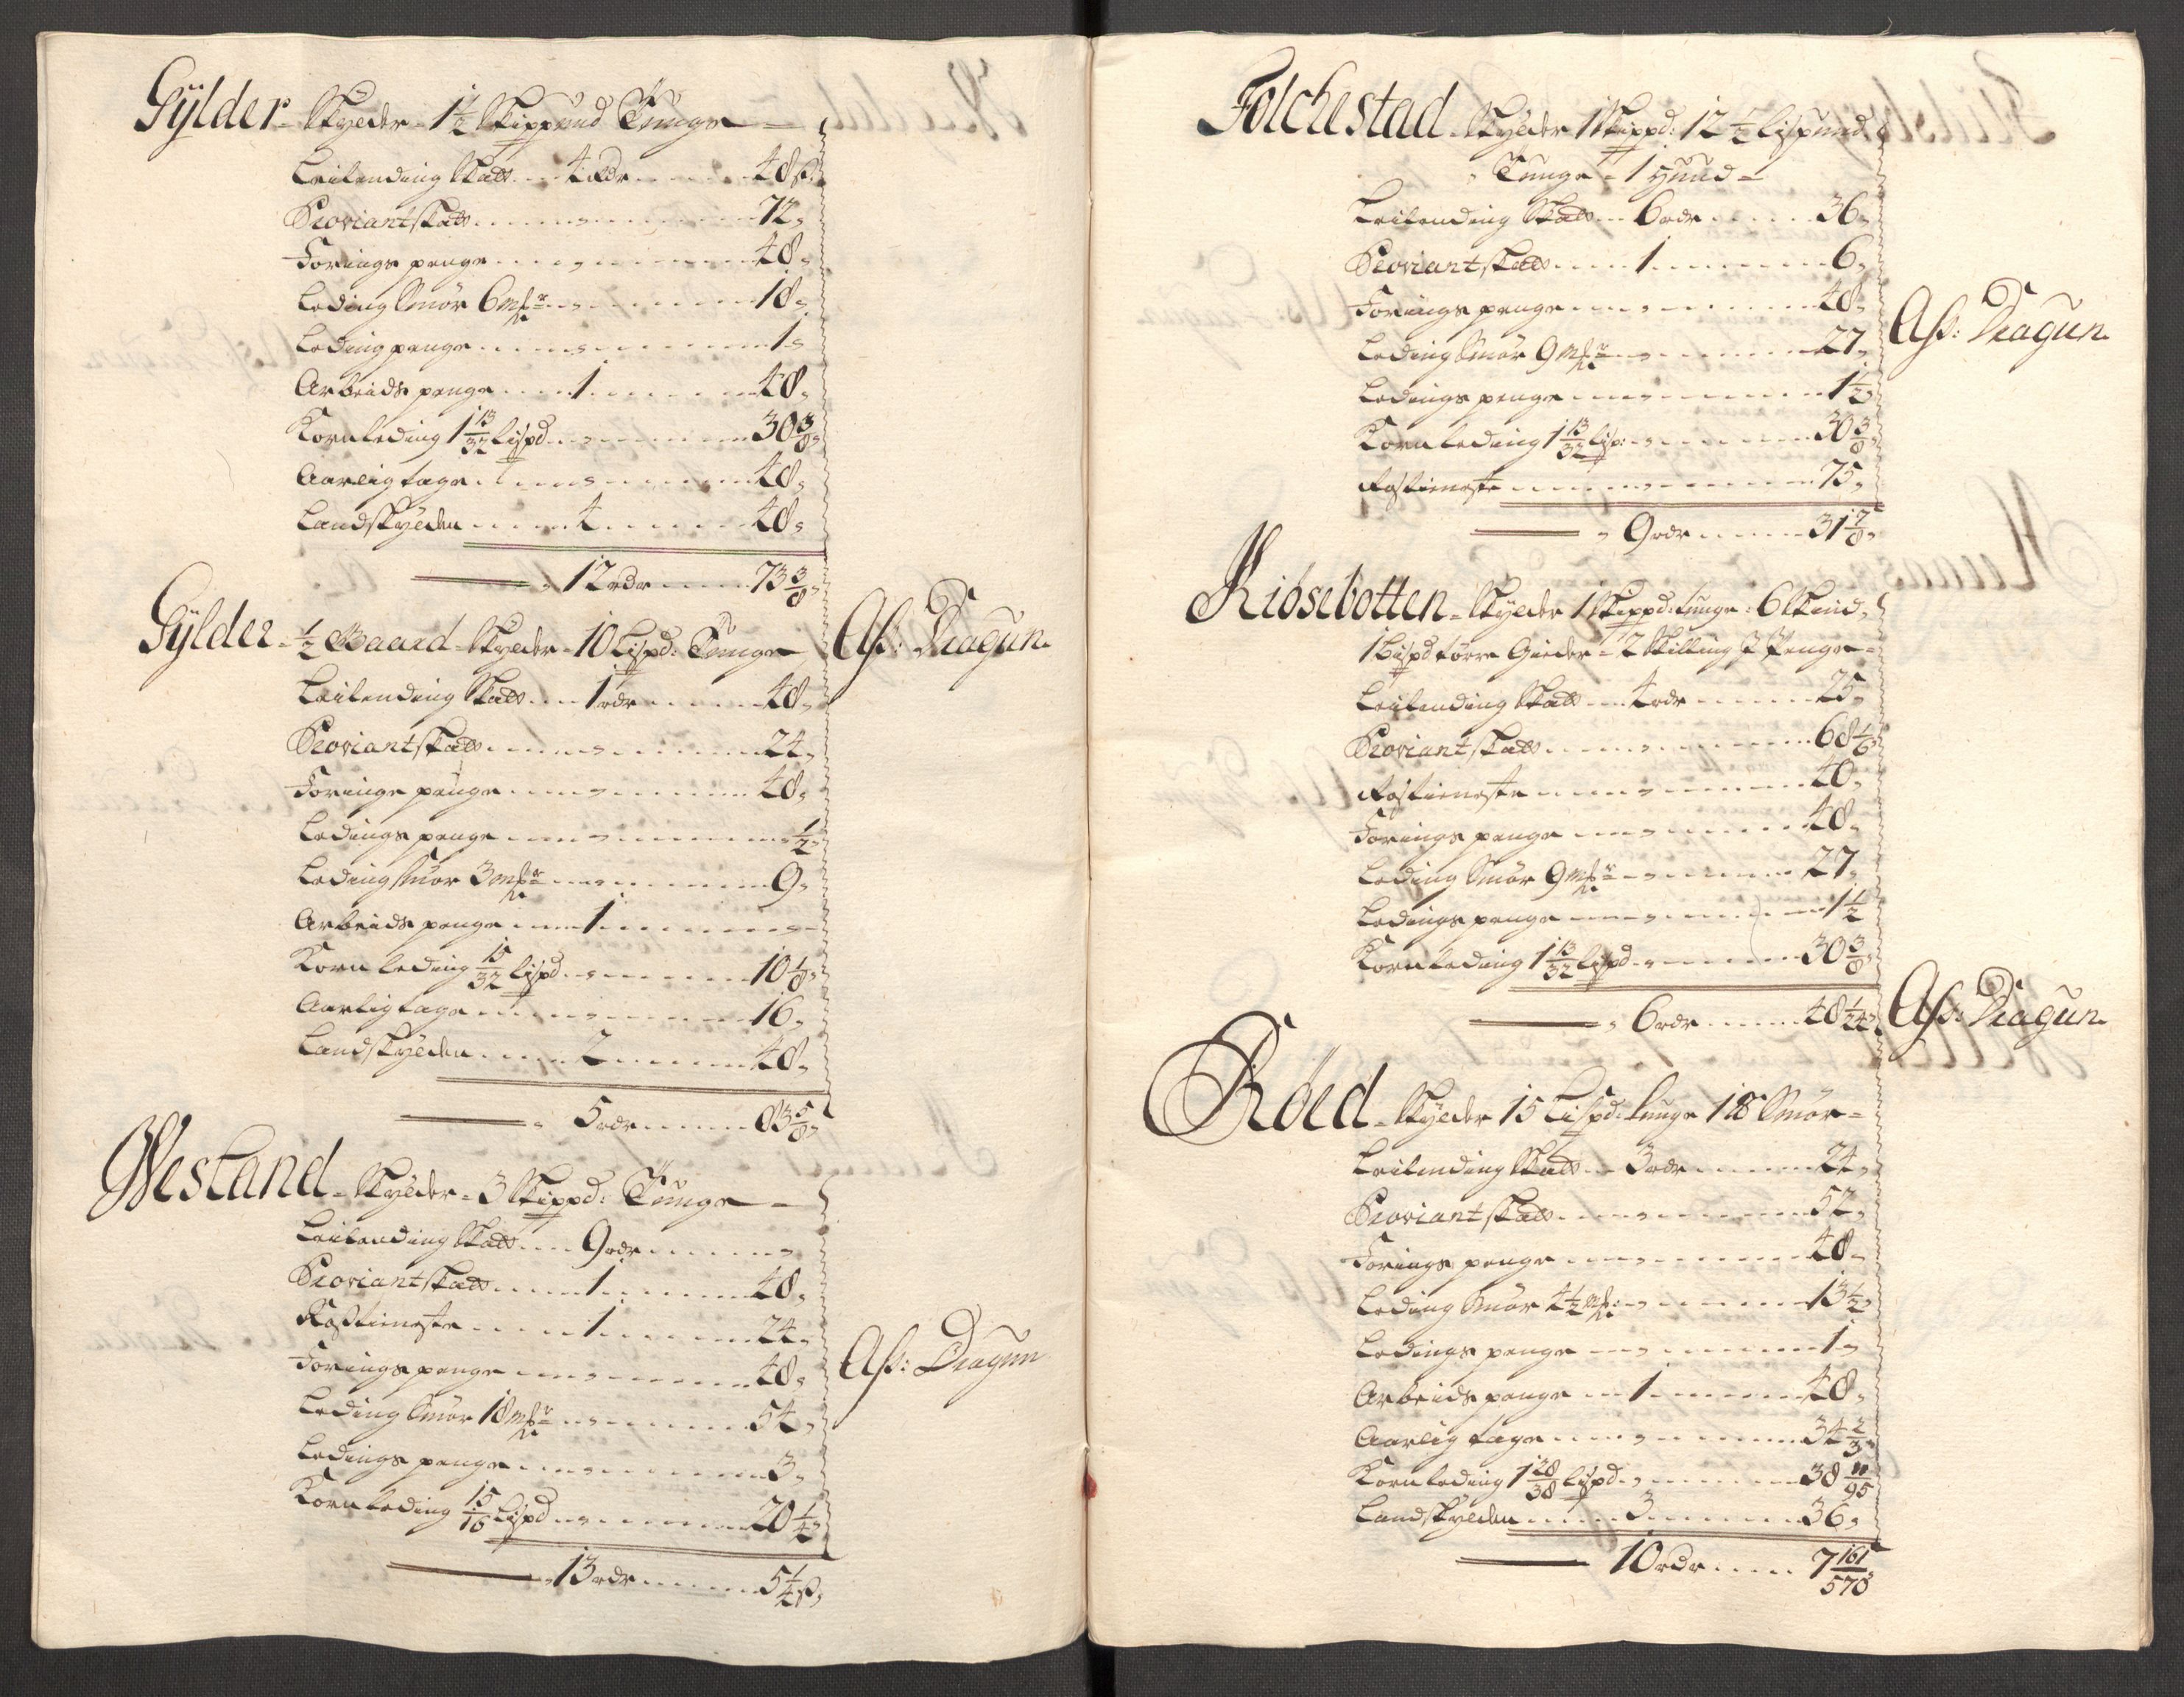 Gÿlder - Skÿlder - 1 1/2 Skippund Tunge -
Leilending Skatt . . . 4 rdr . . . . . . 48 s
Proviantskatt . . . . . . . . . . 72 "
Forings penge . . . . . . . . . . 48 "
Leding Smör 6 mkr . . . . . . . . 18 "
Leding penge . . . . . . . . . . 1 "
Arbeids penge . . . 1 . . . . . . 48 "
Korn leding 1 13/32 lispd . . . . . . 30 3/8 "
Aarlig tage . . . . . . . . . . 48 "
Landskÿlden . . . . 4 . . . . . . 48 "
" 12 rdr . . . . 73 3/8 "
Gÿlder - 1/2 Gaard - Skÿlder - 10 Lispd: Tunge
Afs: Dragun
Leilending Skatt . . . 1 rdr . . . . . 48 "
Proviantskatt . . . . . . . . . . 24 "
Forings penge . . . . . . . . . . 48 "
Ledings penge . . . . . . . . . . 1/2 "
Leding Smör 3 mkr . . . . . . . . 9 "
Arbeids penge . . . 1 . . . . . . "
Korn leding 15/32 lispd . . . . . . 10 1/8 "
Aarlig tage . . . . . . . . . . 16 "
Landskÿlden . . . . 2 . . . . . . 48 "
" 5 rdr . . . . 83 5/8 "
Westand - Skÿlder - 3 Skippd: Tunge -
Leilending Skatt . . . 9 rdr . . . . . "
Proviantskatt . . . . 1 . . . . . . 48 "
Rostieneste . . . . 1 . . . . . . 24 "
Forings penge . . . . . . . . . . 48 "
Afs: Dragun
Leding Smör 18 mkr . . . . . . . . 54 "
Ledings penge . . . . . . . . . . 3 "
Korn leding 15/16 lispd . . . . . . 20 1/4 "
" 13 rdr . . . . 5 1/4 s "
Folchestad - Skÿlder 1 Skippd: 12 1/2 lispund
Tunge - 1 Huud -
Leilending Skatt . . . 6 rdr . . . . . 36 "
Proviantskatt . . . . 1 . . . . . . 6 "
Forings penge . . . . . . . . . . 48 "
Afs: Dragun
Leding Smör 9 mkr . . . . . . . . 27 "
Ledings penge . . . . . . . . . . 1 1/2 "
Korn leding 1 13/32 lisp: . . . . . . 30 3/8 "
Rostieneste . . . . . . . . . . 75 "
" 9 rdr . . . . 31 7/8 "
Kiösebotten - Skÿlder 1 Skippd: Tunge : 6 Skind,
1 Bispd törre Gieder - 2 Skilling i Penge -
Leilending Skatt . . . 4 rdr . . . . . 25 "
Proviantskatt . . . . . . . . . . 68 1/6 "
Rostieneste . . . . . . . . . . 40 "
Forings penge . . . . . . . . . . 48 "
Leding Smör 9 mkr . . . . . . . . 27 "
Ledings penge . . . . . . . . . . 1 1/2
Korn leding 1 13/32 lispd . . . . . . 30 3/8 "
" 6 rdr . . . . 48 1/24 "
Afs: Dragun
Röed - Skÿlder 15 Lispd: Tunge 1 ℔ Smör -
Leilending Skatt . . . 3 rdr . . . . . 24 "
Proviantskatt . . . . . . . . . . 52 "
Forings penge . . . . . . . . . . 48 "
Leding Smör 4 1/2 mk: . . . . . . . . 13 1/2 "
Ledings penge . . . . . . . . . . 1 "
Arbeids penge . . . 1 . . . . . . 48 "
Aarlig tage . . . . . . . . . . 34 2/3 "
Korn leding 1 28/38 lispd . . . . . . 38 11/95
Landskÿlden . . . . 3 . . . . . . 36 "
10 rdr . . . . 7 161/570 "